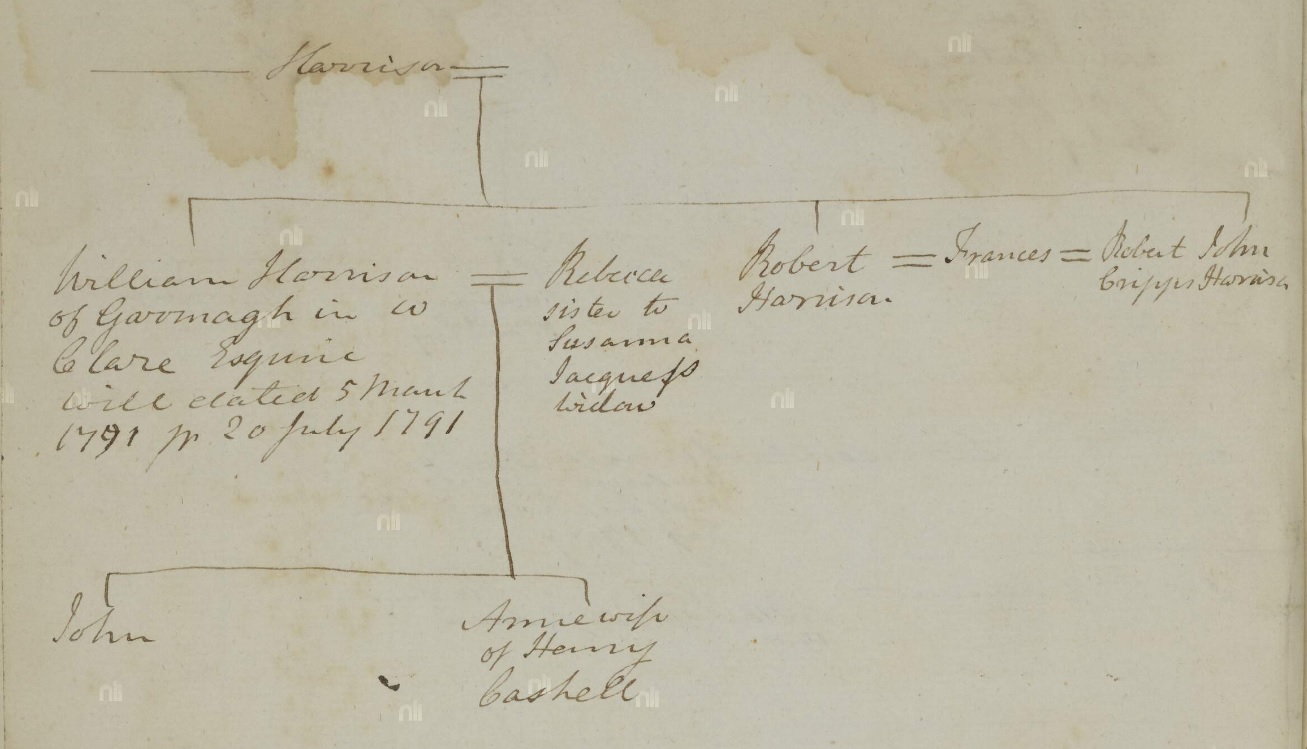 Harrison
William Harrison
of Garomagh in Co
Clare Esquire
will dated 5 March
1791 pr 20 July 1791
Rebecca
sister to
Susanna
Jacquess
Widow
Robert
Harrison
Frances
Robert John
Cripps Harrison
John
Anne wife
of Henry
Cashell